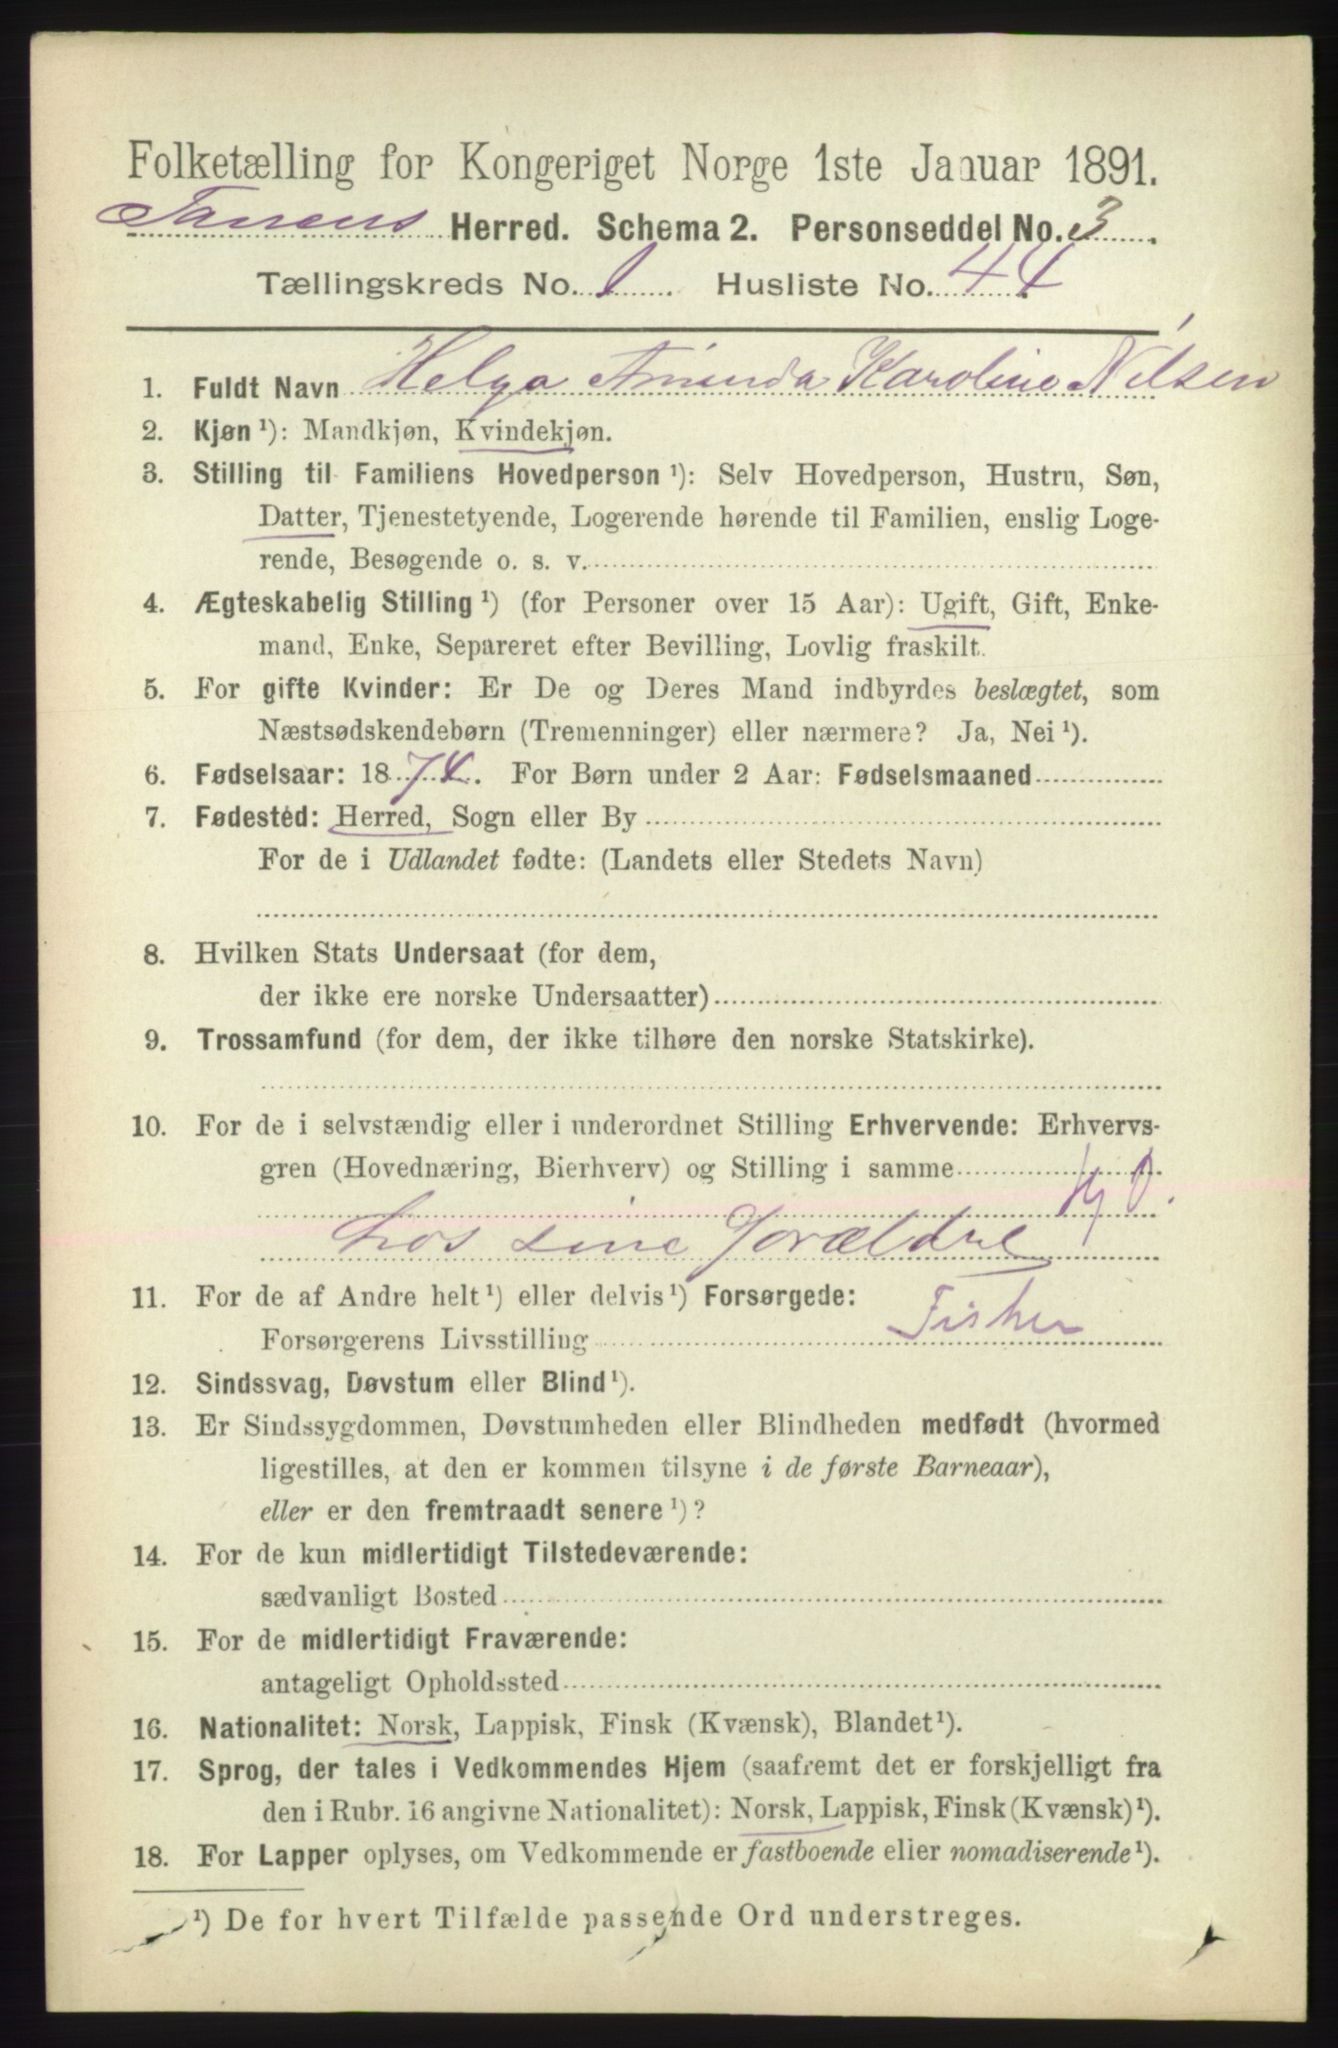 Folketælling for Kongeriget Norge 1ste Januar 1891.
Tanens Herred. Schema 2. Personseddel No. 3
Tællingskreds No. 1 Husliste No. 44
1. Fuldt Navn Helga Aminda Karoline Nilsen
2. Kjøn¹): Mandkjøn, Kvindekjøn.
3. Stilling til Familiens Hovedperson¹): Selv Hovedperson, Hustru, Søn,
Datter, Tjenestetyende, Logerende hørende til Familien, enslig Loge-
rende, Besøgende o. s. v.
4. Ægteskabelig Stilling¹) (for Personer over 15 Aar): Ugift, Gift, Enke-
mand, Enke, Separeret efter Bevilling, Lovlig fraskilt.
5. For gifte Kvinder: Er De og Deres Mand indbyrdes beslægtet, som
Næstsødskendebørn (Tremenninger) eller nærmere? Ja, Nei¹).
6. Fødselsaar: 1874. For Børn under 2 Aar: Fødselsmaaned
7. Fødested: Herred, Sogn eller By
For de i Udlandet fødte: (Landets eller Stedets Navn)
8. Hvilken Stats Undersaat (for dem,
der ikke ere norske Undersaatter)
9. Trossamfund (for dem, der ikke tilhøre den norske Statskirke).
10. For de i selvstændig eller i underordnet Stilling Erhvervende: Erhvervs-
gren (Hovednæring, Bierhverv) og Stilling i samme
hos sine Forældre
11. For de af Andre helt¹) eller delvis¹) Forsørgede:
Forsørgerens Livsstilling Fisker
12. Sindssvag, Døvstum eller Blind¹).
13. Er Sindssygdommen, Døvstumheden eller Blindheden medfødt (hvormed
ligestilles, at den er kommen tilsyne i de første Barneaar),
eller er den fremtraadt senere¹)?
14. For de kun midlertidigt Tilstedeværende:
sædvanligt Bosted
15. For de midlertidigt Fraværende:
antageligt Opholdssted
16. Nationalitet: Norsk, Lappisk, Finsk (Kvænsk), Blandet¹).
17. Sprog, der tales i Vedkommendes Hjem (saafremt det er forskjelligt fra
den i Rubr. 16 angivne Nationalitet): Norsk, Lappisk, Finsk (Kvænsk)¹).
18. For Lapper oplyses, om Vedkommende er fastboende eller nomadiserende¹).
¹) De for hvert Tilfælde passende Ord understreges.